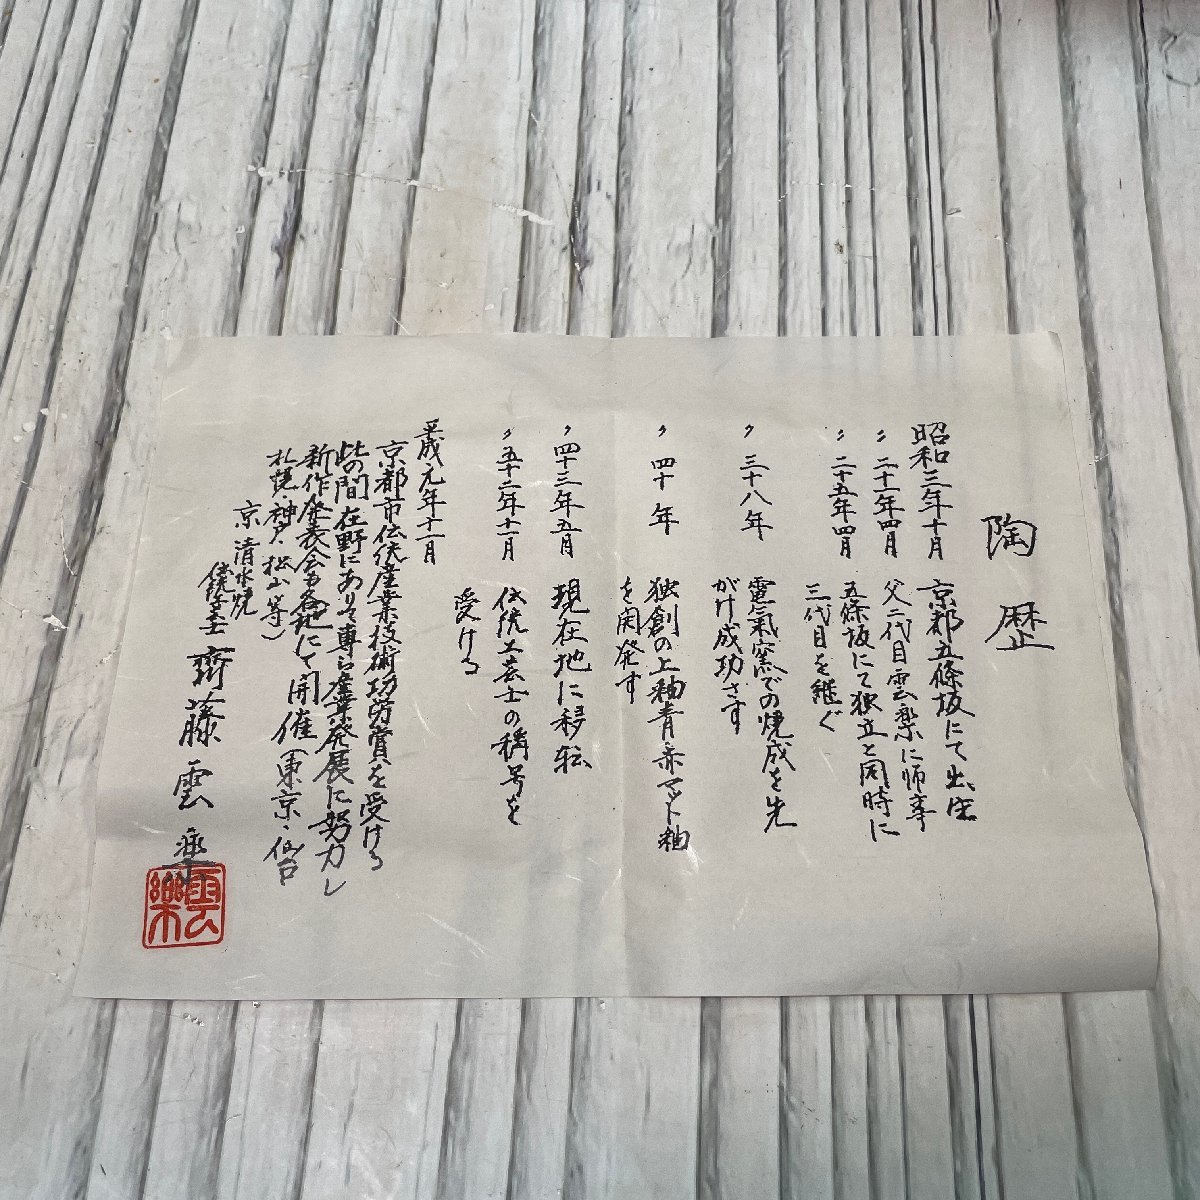 陶歴
昭和三年十月 京都五條坂にて出生
〃二十一年四月 父二代目雲楽に師事
〃二十五年四月 五條坂にて独立と同時に
三代目を継ぐ
〃三十八年 電氣窯での焼成を先
がけ成功さす
〃四十年 独創の上釉青赤マット釉
を開発す
〃四十三年五月 現在地に移転
〃五十二年十一月 伝統工芸士の稱号を
受ける
平成元年十一月
京都市伝統産業技術功労賞を受ける
此の間在野にありて専ら産業発展に努力し
新作発表会も各地にて開催(東京・仙台
札幌・神戸・松山等)
京清水焼
伝統工芸士 齋藤雲楽
雲楽